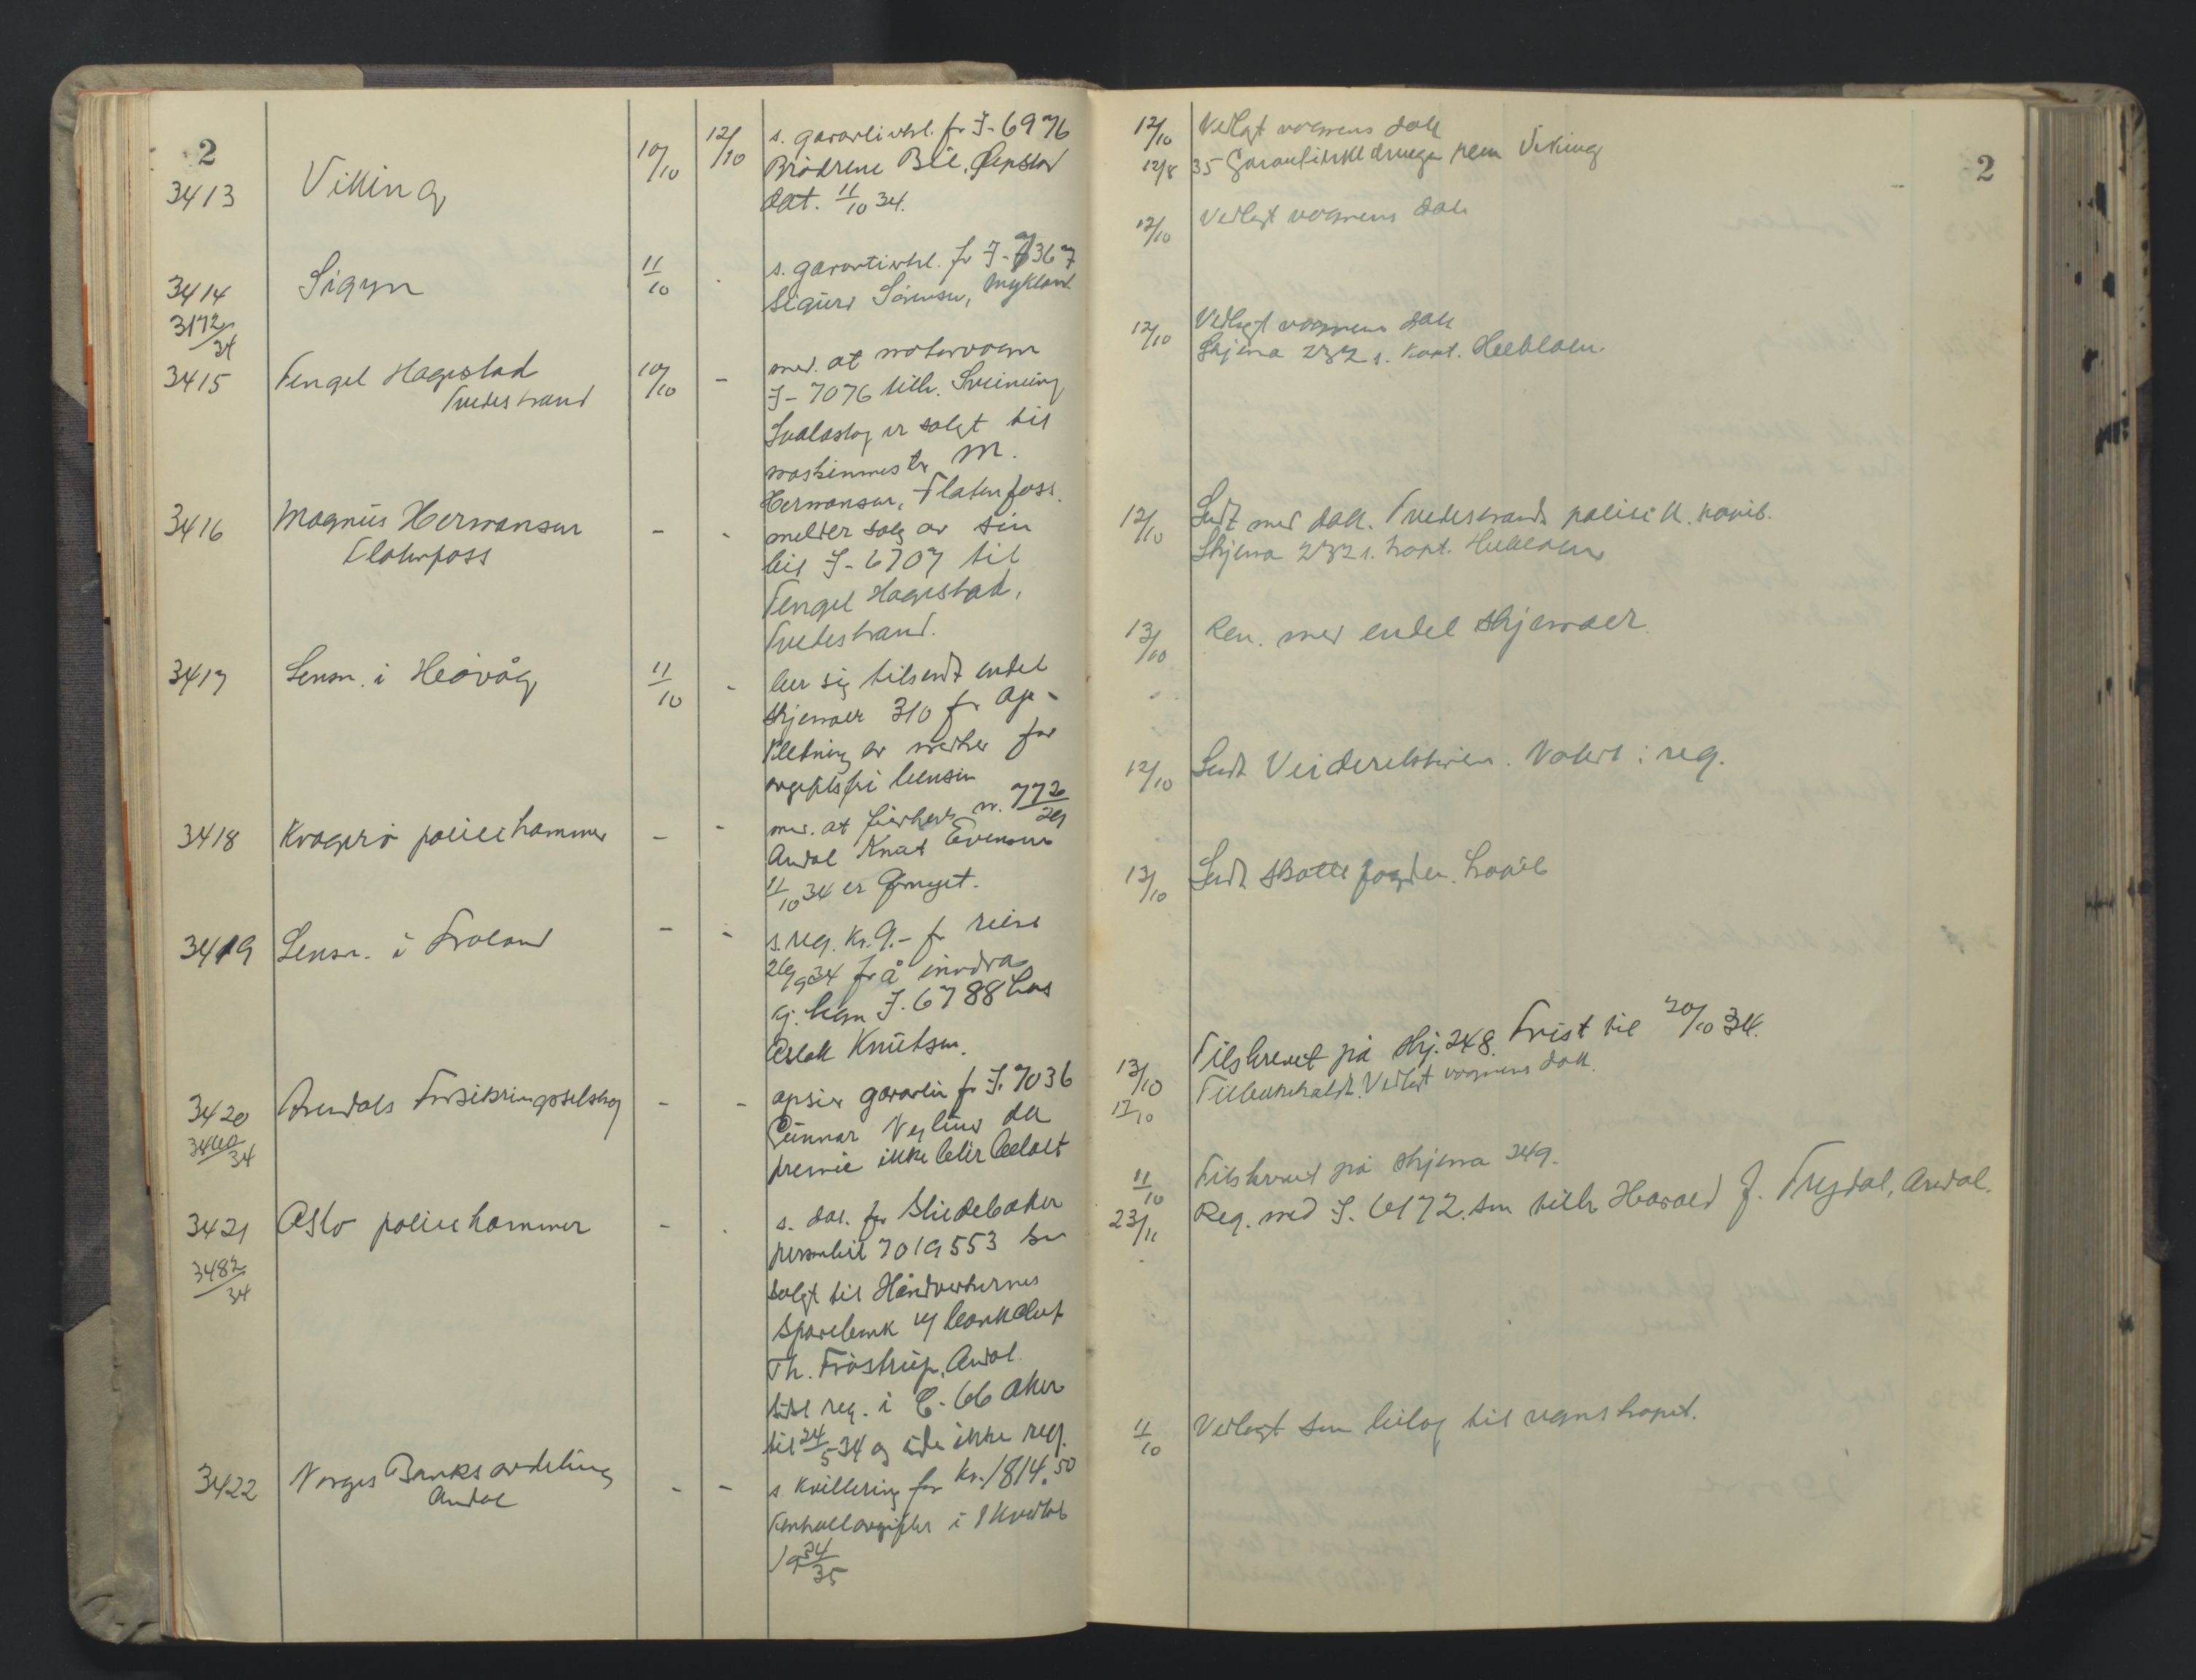 2
3413
Viking
10/10
12/10
s. garantierkl. fr J-6976
Brødrene
dat. 11/10 34.
3414
3172/34
Sigyn
11/10
s. garantierkl. fr J-7367
Sigurd Sørensen, Mykland
3415
Tengel Hagestad
Tvedestrand
10/10
-
med. at motorvogn
J-7076 tilh. Sveinung
Svalastog er solgt til
maskinmester M.
Hermansen, Flatenfoss.
3416
Magnus Hermansen
Flatenfoss
-
-
melder salg av sin
bil J-6707 til
Tengel Hagestad,
Tvedestrand.
3417
Lensm. i Høvåg
11/10
-
ber sig tilsendt endel
skjemaer 310 fr op-
kletning av merker for
avgiftsfri bensin
3418
Kragerø politikammer
-
-
med. at førerbevis nr. 772/29
Andal Knut Evensen
11/10 34 er fornyet.
3419
Lensm. i Froland
-
-
s. reg. kr. 9.- fr reise
26/9 34 fr å inndra
kj. tegn J. 6788 hos
Aslak Knutsen.
3420
3440/34
Arendals Forsikringsselskap
-
-
opsier garanti fr J. 7036
Gunnar da
premie ikke blir betalt
3421
3482/34
Oslo politikammer
-
s. dok. for Studebaker
personbil 7019553 som
solgt til Håndverkernes
Sparebank v/ bankchef
Th. Frøstrup, Andal
sist reg. i C-66 Aker
til 24/5-34 og siden ikke reg.
3422
Norges Banks avdeling
Andal
-
-
s. kvittering for kr. 1814.50
kontrollavgifter i 1 kvartal
1934/35
2
12/10 Vedlagt vognens dok
12/8 35 Garantierkl. Viking
12/10 Vedlagt vognens dok
12/10 Vedlagt vognens dok
Skjema 232 s. kont.
12/10 Sendt med dok. Tvedestrands politik.
Skjema 232 s. kont.
13/10 Ren. med endel skjemaer.
12/10 Sendt Veidirektøren. Notert i reg.
13/10 Sendt skattefogden.
13/10 Tilskrevet på skj. 248. Frist til 20/10 34.
17/10 Vedlagt vognens dok.
11/10 Tilskrevet på skjema 349.
23/11 Reg. med J. 6172 som tilh Harald J. Frydal, Andal.
11/10 Vedlagt som bilag til regnskapet.